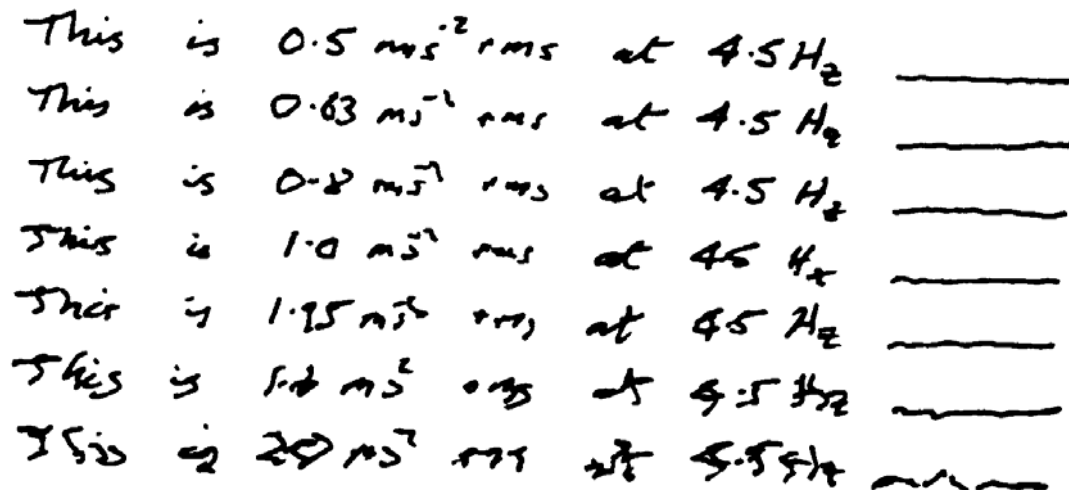 This is 0.5 ms⁻² rms at 4.5 Hz
This is 0.63 ms⁻² rms at 4.5 Hz
This is 0.8 ms⁻² rms at 4.5 Hz
This is 1.0 ms⁻² rms at 4.5 Hz
This is ms⁻² rms at 4.5 Hz
This is ms⁻² rms at 4.5 Hz
This is 2.0 ms⁻² rms at 4.5 Hz